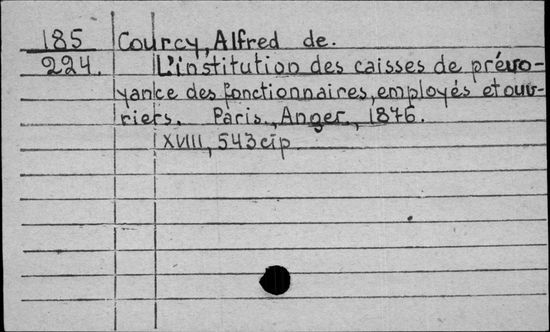 185 Courcy, Alfred de.
224. L'institution des caisses de prévo-
yance des fonctionnaires, employés et ouv-
riers. Paris, Anger, 1876.
XVIII, 543 c̄ip